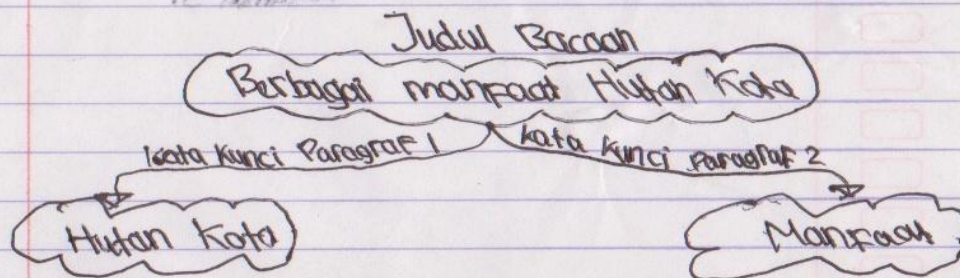 Judul Bacaan
Berbagai manfaat Hutan Kota
Kata Kunci Paragraf 1
Kata Kunci Paragraf 2
Hutan Kota
Manfaat